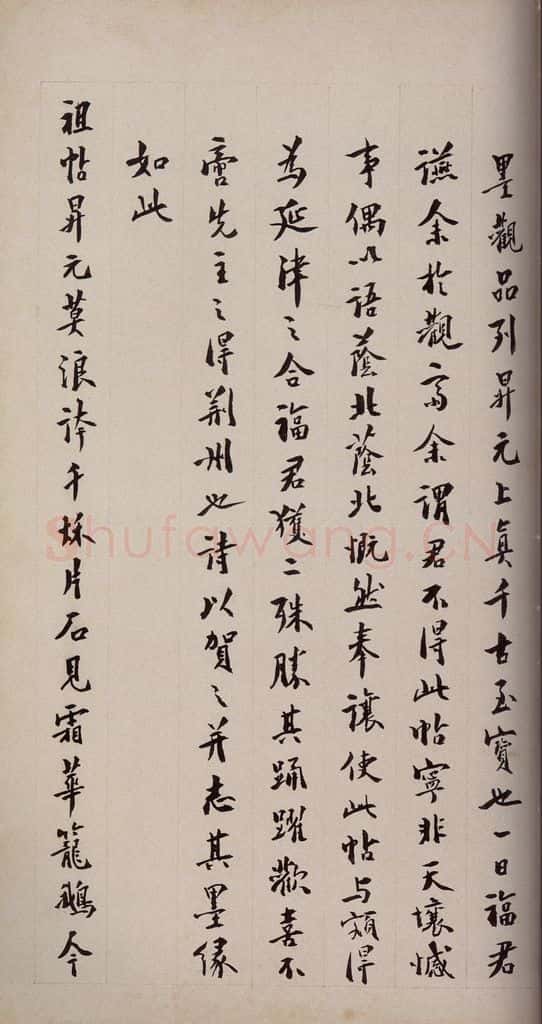 墨觀品列昇元上眞千古至寶也一日福君
讌余於觀齋余謂君不得此帖寧非天壤憾
事偶以語蔭北蔭北慨然奉讓使此帖与額得
為延津之合福君獲二殊勝其踊躍歡喜不
啻先主之得荆州也詩以賀之并志其墨缘
如此
祖帖昇元莫浪誇千秌片石見霜華籠鵝今
Shufawang.CN